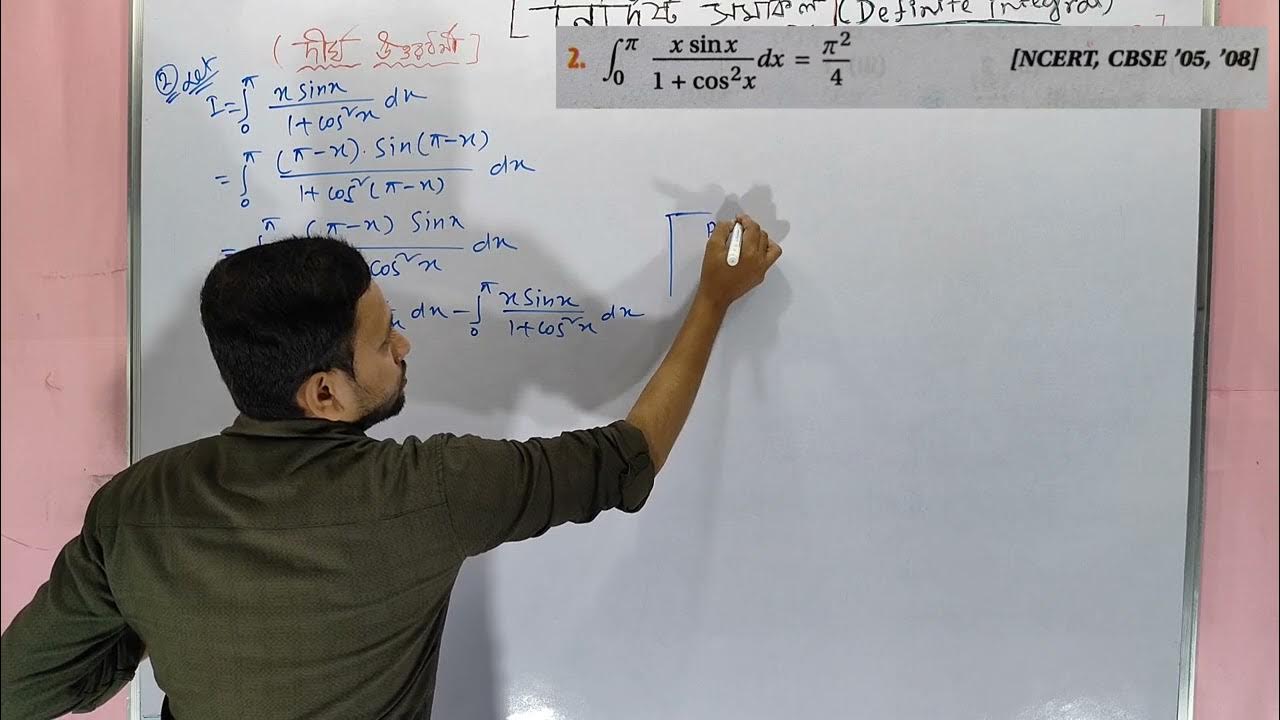 [ নির্দিষ্ট সমাকল (Definite Integral)
2. ∫₀^π (x sin x)/(1 + cos²x) dx = π²/4 [NCERT, CBSE '05, '08]
(দীর্ঘ উত্তরধর্মী]
② Let
I = ∫₀^π (x sinx)/(1+cos²x) dx
= ∫₀^π ((π-x). Sin(π-x))/(1+cos²(π-x)) dx
= (π-x) Sinx / cos²x dx
dx - ∫₀^π (x Sinx)/(1+cos²x) dx